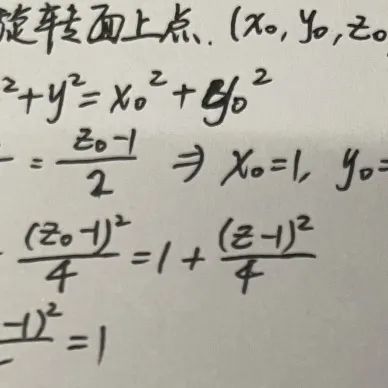 旋转面上点. (x₀, y₀, z₀
²+y²=x₀²+y₀²
= (z₀-1)/2 ⇒ x₀=1, y₀=
(z₀-1)²/4 = 1 + (z-1)²/4
-1)² = 1